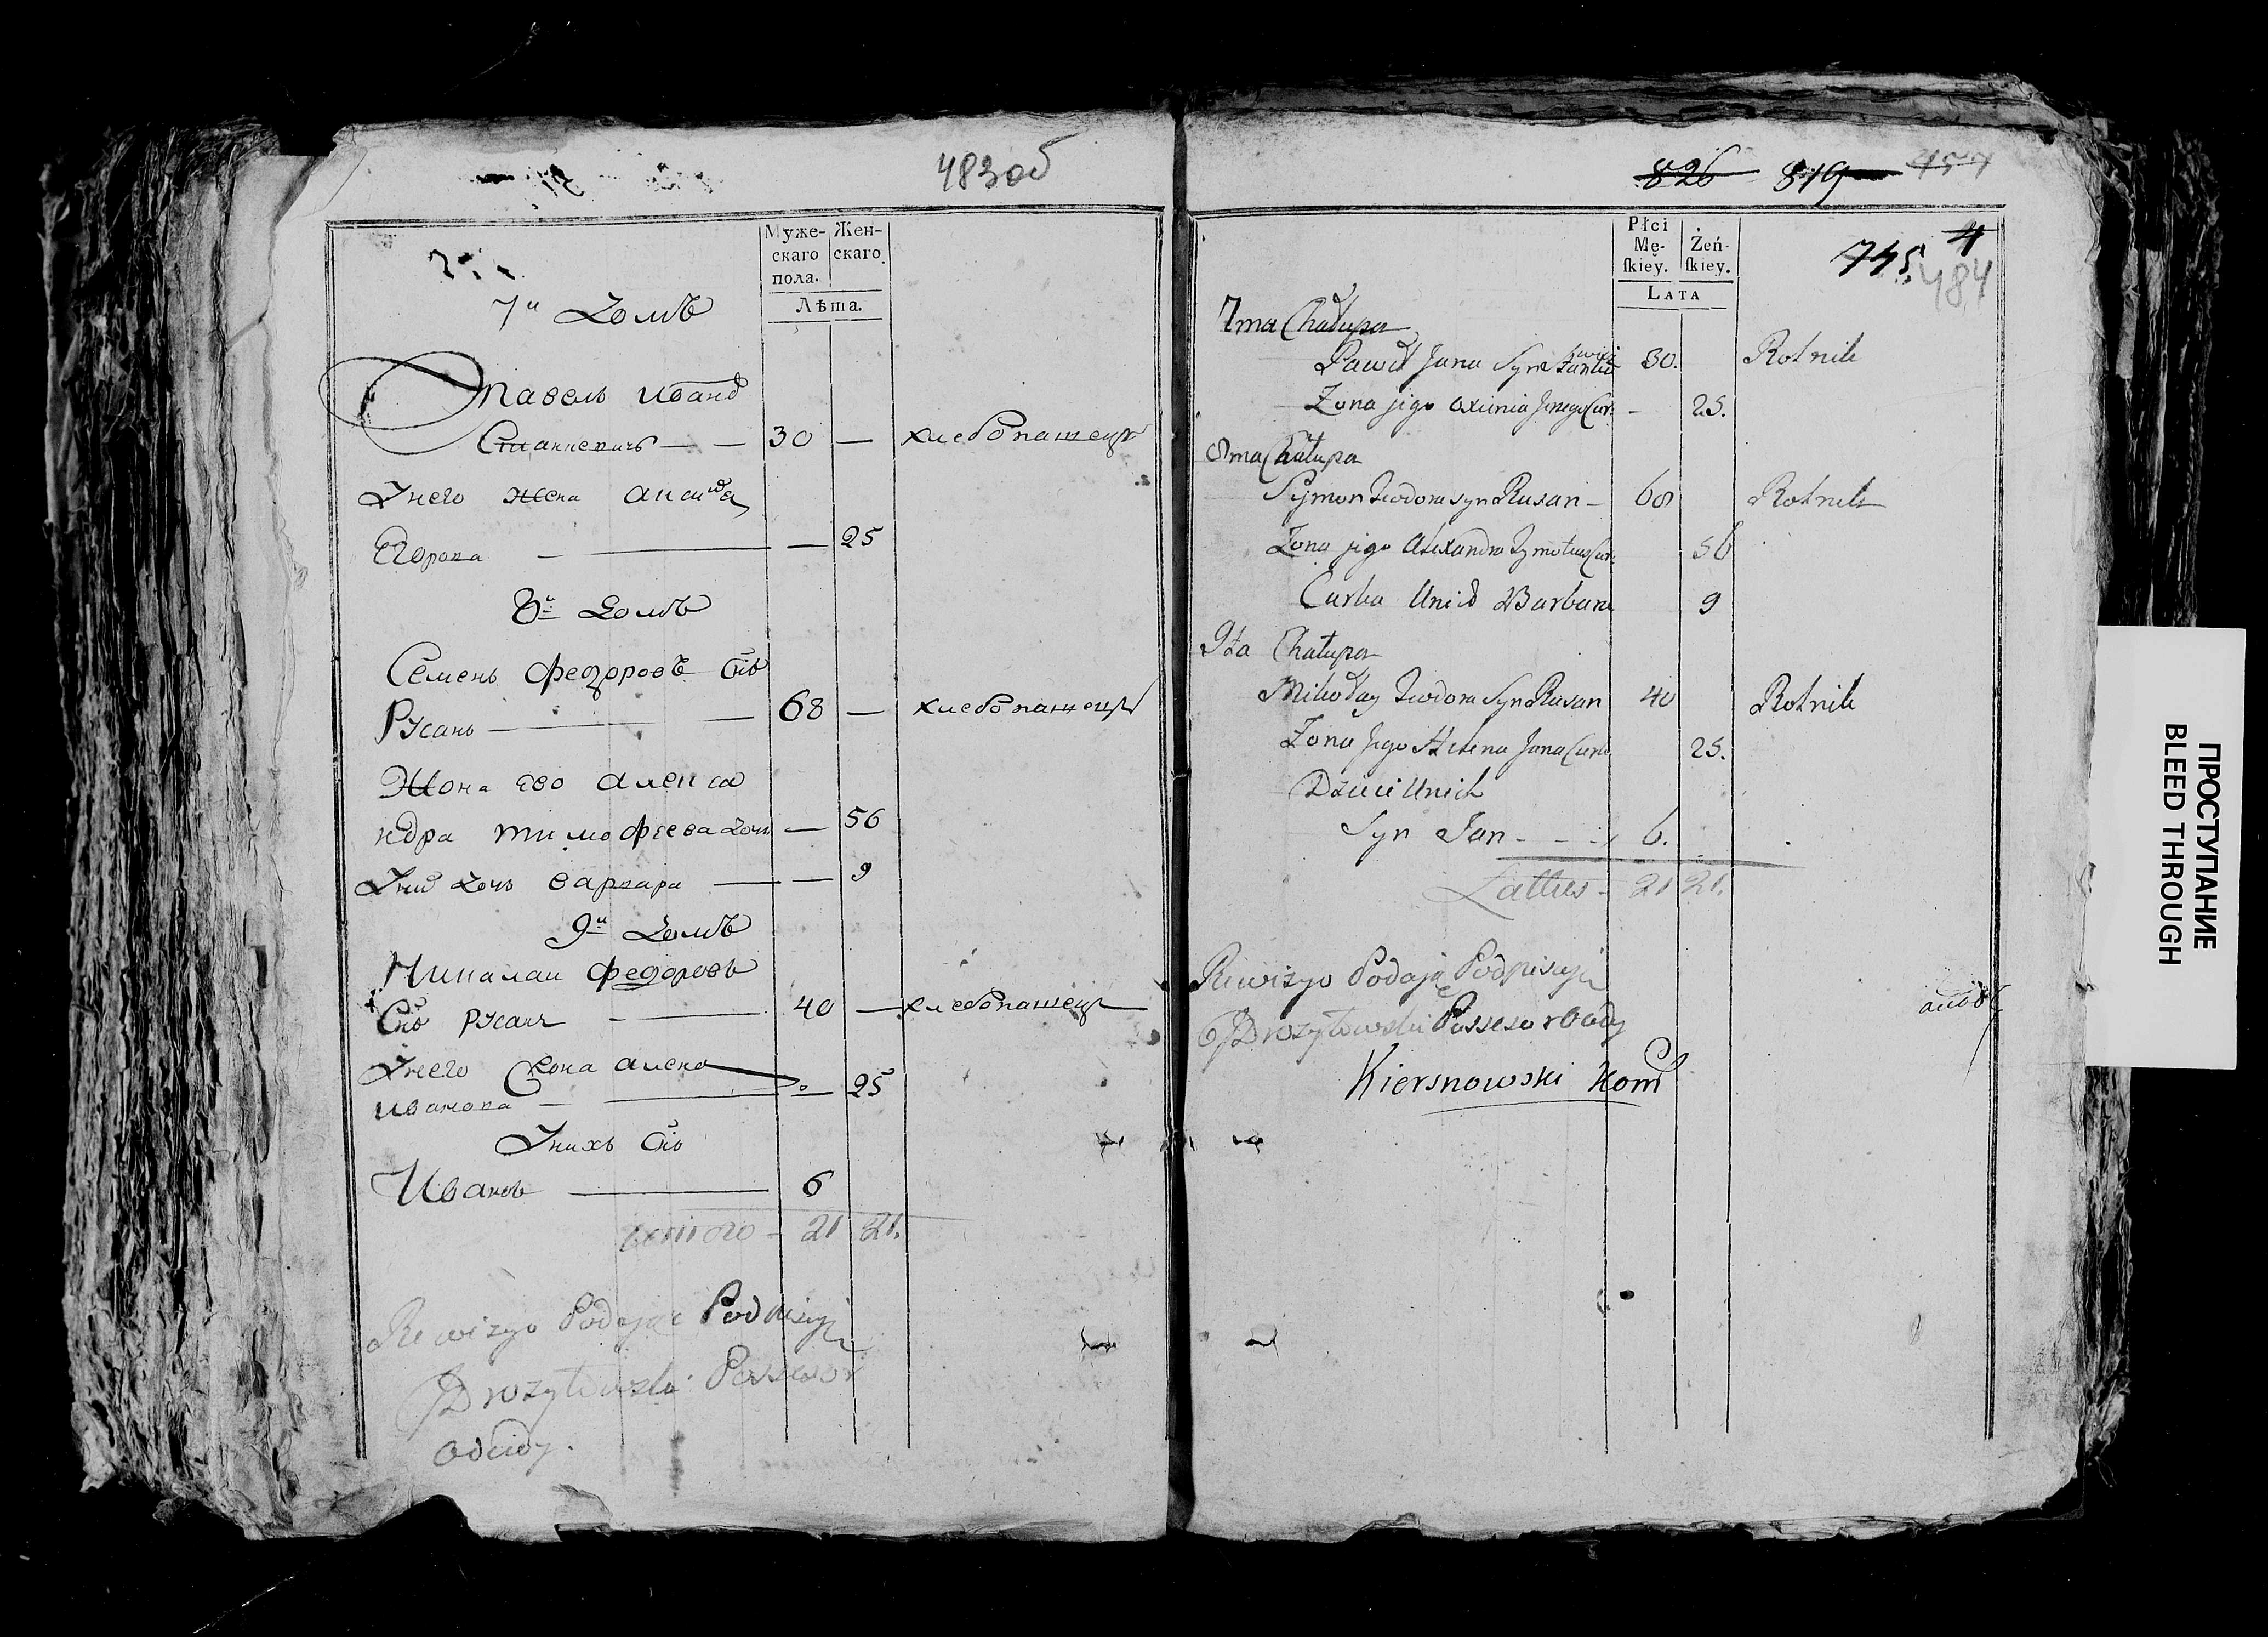 483об
Муже-
скаго
пола.
Жен-
скаго.
Лѣта.
7й Домъ
Павелъ Иванъ
Станкевичъ — — 30 — хлебопашецъ
У него жена
Егорова — — — 25
8й Домъ
Семенъ Федоровъ Снъ
Русанъ — — 68 — хлебопашецъ
Жона его Алекса
ндра Тимофеева дочь — 56
У них дочь Варвара — — 9
9й Домъ
Николай Федоровъ
Снъ Русанъ — 40 — хлебопашецъ
У него жона Алена
Иванова — — — 25
У нихъ Снъ
Иванъ — 6
- 21 21.
Rewizyo Podając Podpisuję
Possesor
826 819 457
Płci
Mę-
skiey.
Żeń-
skiey.
Lata
745. 4
484
7ma Chałupa
Paweł Jana Syn 30. Rolnik
Zona jego Cur. - 25.
8ma Chałupa
Symon Teodora Syn Rusan - 68 Rolnik
Zona jego Alexandra Tymoteusza Cur. 56
Curka Unich Barbara 9
9ta Chałupa
Mikołay Teodora Syn Rusan 40 Rolnik
Zona jego Helena Jana Curk 25.
Dzieci Unich
Syn Jan - - - 6.
Lattus - 21 21.
Rewizyo Podając Podpisuję
Possesor
Kiersnowski Kom
ПРОСТУПАНИЕ
BLEED THROUGH